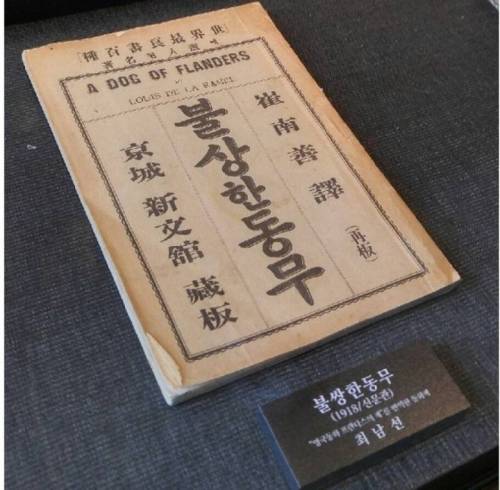 [種百書良最界世]
A DOG OF FLANDERS
LOUIS DE LA RAMEE
崔南善 譯
(再板)
불상한동무
京城 新文館 藏板
불쌍한동무
(1918/신문관)
최남선